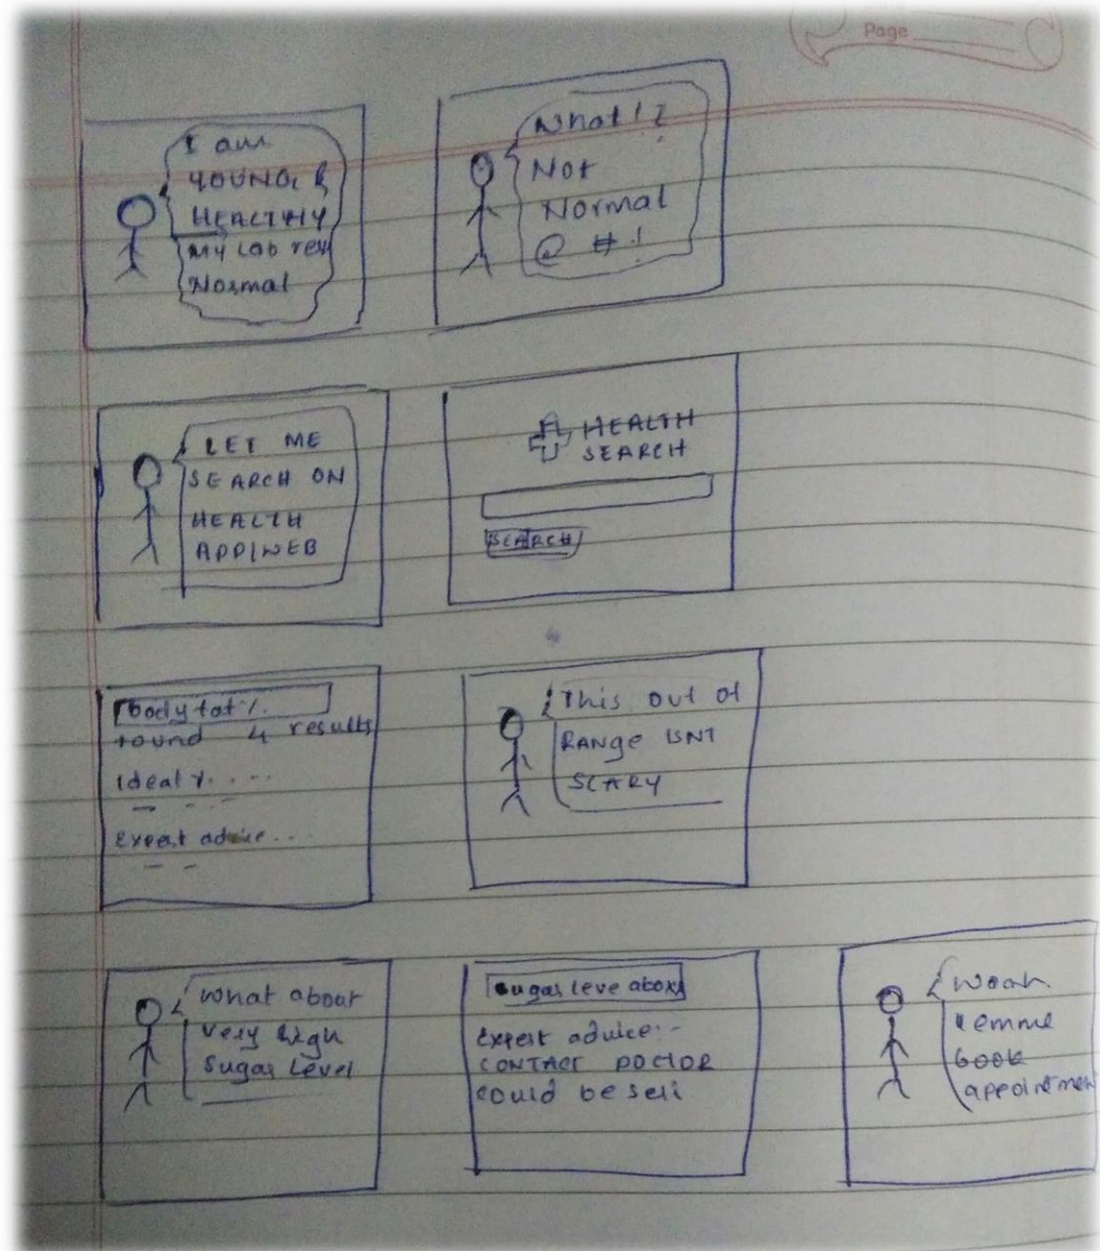 Page
I am
YOUNG &
HEALTHY
My Lab res
Normal
What!?
Not
Normal
@ # !
LET ME
SEARCH ON
HEALTH
APP/WEB
HEALTH
SEARCH
SEARCH
body fat %.
found 4 results
Ideal %. . . .
Expert advice . . .
This out of
RANGE ISNT
SCARY
What about
Very high
Sugar Level
Sugar leve above
Expert advice:-
CONTACT DOCTOR
could be seri
Woah.
Lemme
book
appointmen